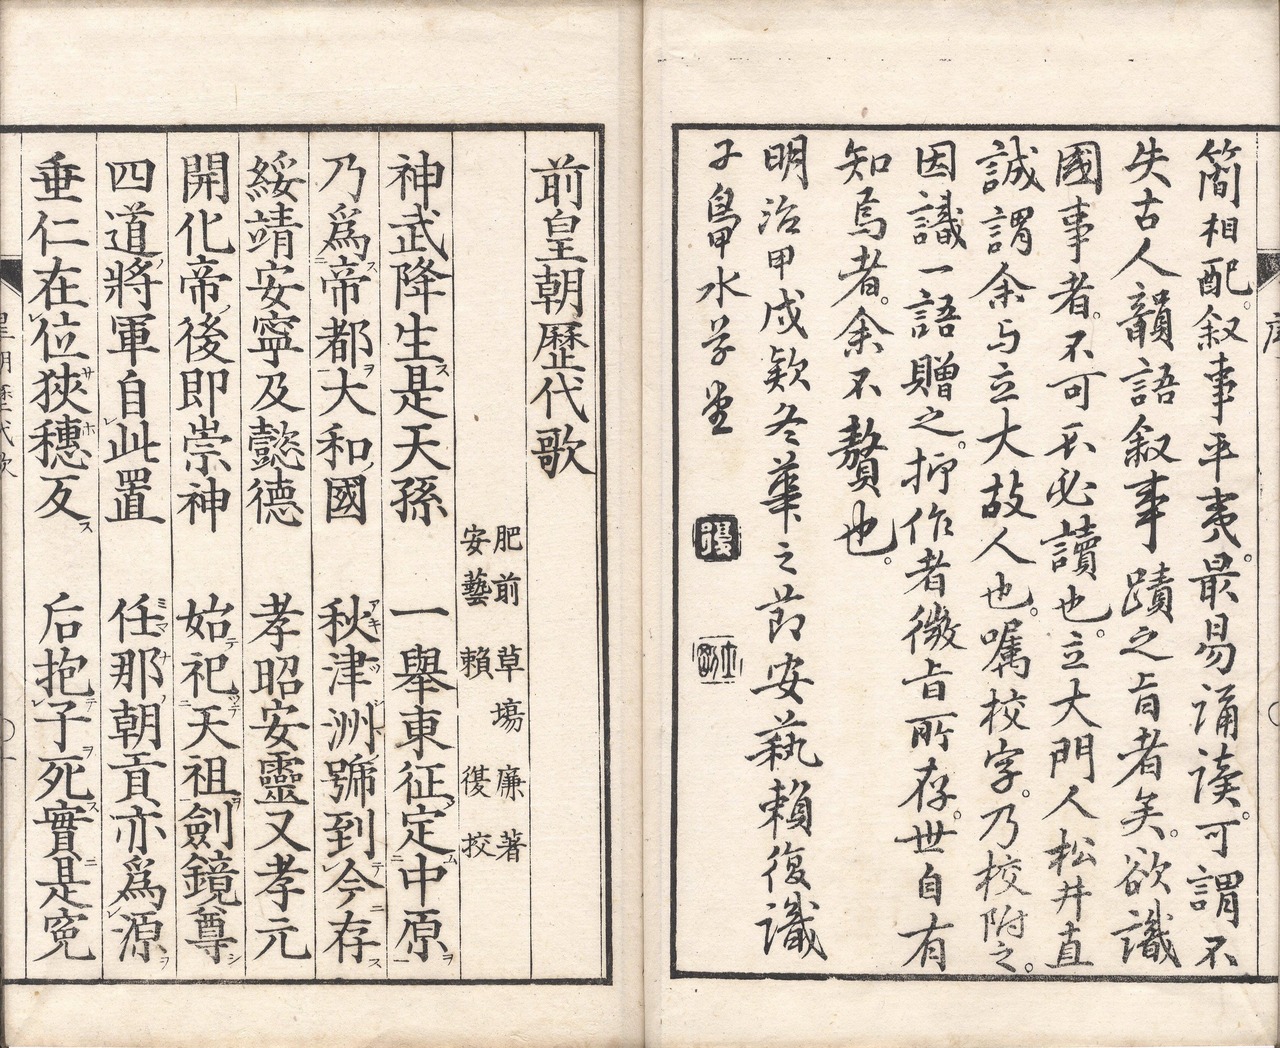 簡相配。叙事平夷。最易誦讀。可謂不
失古人韻語叙事蹟之旨者矣。欲識
國事者。不可不必讀也。立大門人松井直
誠謂余与立大故人也。嘱校字。乃校附之。
因識一語贈之。抑作者微旨所存。世自有
知焉者。余不贅也。
明治甲戌欵冬華之節安藝賴復識
于鳥甲水草堂
序
前皇朝歷代歌
肥前 草場 廉 著
安藝 賴 復 校
神武降生ス是天孫 一舉東征定ム中原ヲ
乃爲ス帝都ヲ大和國 秋津洲號到今ニ存ス
綏靖安寧及懿德 孝昭安靈又孝元
開化帝後即崇神 始テ祀天祖ヲ劍鏡尊シ
四道將軍自此置 任那朝貢亦爲源ヲ
垂仁在位狹穗反ス 后抱子ヲ死ス實ニ是寃
皇朝歷代歌 一